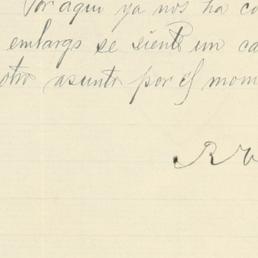 Por aquí ya nos ha co
embargo se siente un ca
otro asunto por el mom
R